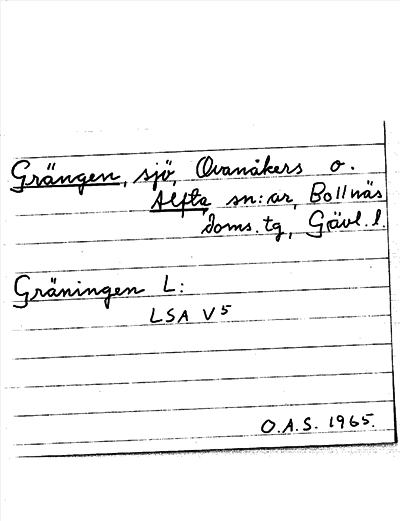 Grängen, sjö, Ovanåkers o.
Alfta sn:ar, Bollnäs
doms.tg, Gävl.l.
Gräningen L:
LSA V 5
O.A.S. 1965.